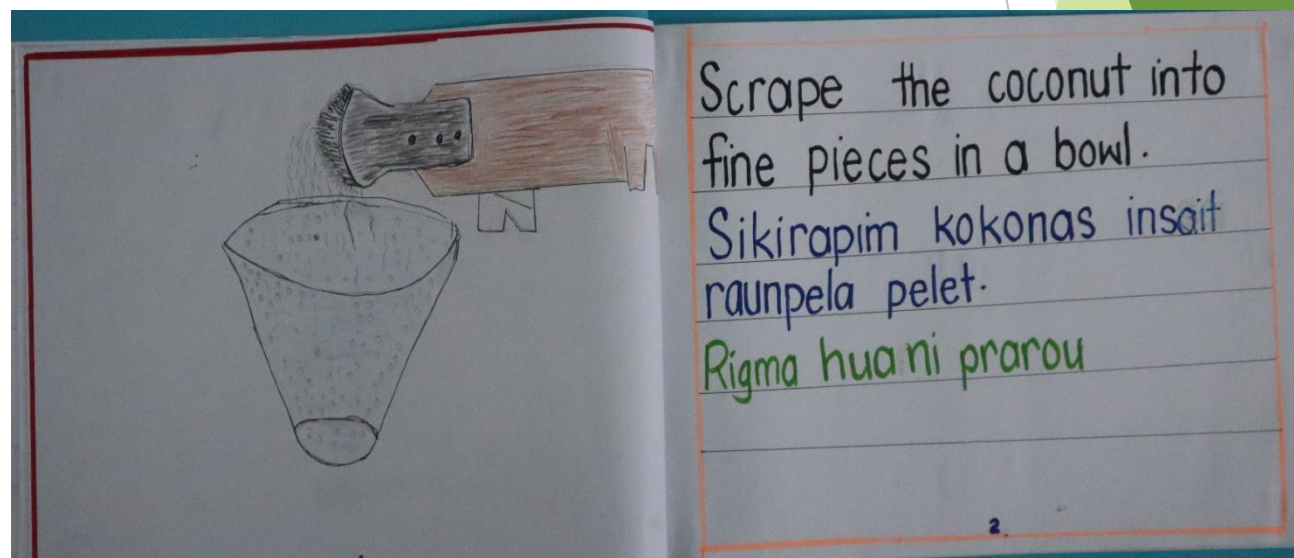 Scrape the coconut into
fine pieces in a bowl.
Sikirapim kokonas insait
raunpela pelet.
Rigma hua ni prarou
2